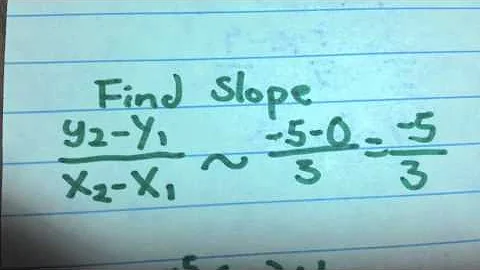 Find Slope
y₂-y₁ / x₂-x₁ ~ -5-0 / 3 = -5 / 3